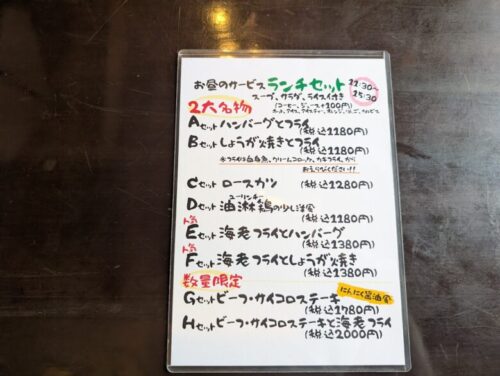 お昼のサービス ランチセット 11:30〜15:30
スープ、サラダ、ライス付き
(コーヒー、ジュース+100円)
2大名物
Aセット ハンバーグとフライ
(税込1180円)
Bセット しょうが焼きとフライ
(税込1180円)
※フライは白身魚、クリームコロッケ、カキフライ、から
おえらびください!!
Cセット ロースカツ (税込1280円)
ユーリンチー
Dセット 油淋鶏の少し洋食
(税込1180円)
人気
Eセット 海老フライとハンバーグ
(税込1380円)
人気
Fセット 海老フライとしょうが焼き
(税込1380円)
数量限定
にんにく醤油
Gセット ビーフ・サイコロステーキ
(税込1780円)
Hセット ビーフ・サイコロステーキと海老フライ
(税込2000円)